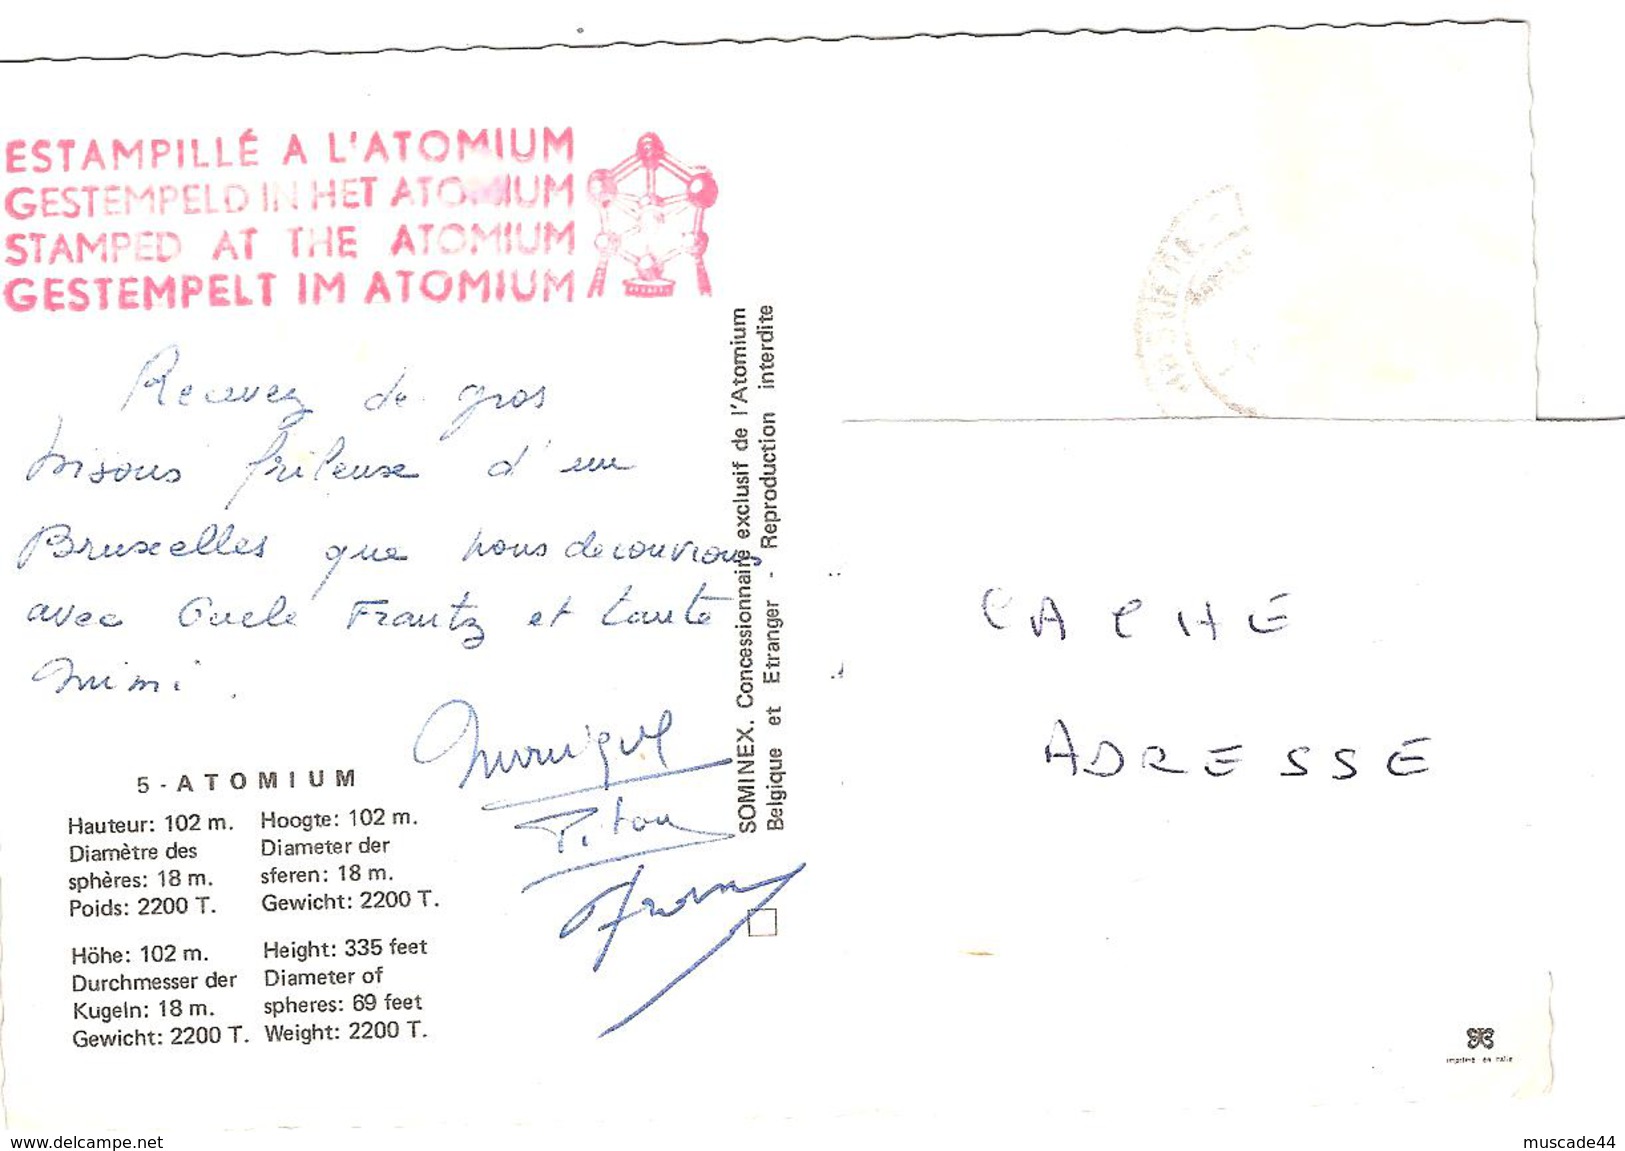 ESTAMPILLÉ A L'ATOMIUM
GESTEMPELD IN HET ATOMIUM
STAMPED AT THE ATOMIUM
GESTEMPELT IM ATOMIUM
Recevez de gros
bisous frileuse d'un
Bruxelles que nous decouvrons
avec Oncle Frantz et tante
Mimi.
Monique
Titou
5 - ATOMIUM
Hauteur: 102 m.
Diamètre des
sphères: 18 m.
Poids: 2200 T.
Hoogte: 102 m.
Diameter der
sferen: 18 m.
Gewicht: 2200 T.
Höhe: 102 m.
Durchmesser der
Kugeln: 18 m.
Gewicht: 2200 T.
Height: 335 feet
Diameter of
spheres: 69 feet
Weight: 2200 T.
SOMINEX. Concessionnaire exclusif de l'Atomium
Belgique et Etranger - Reproduction interdite
CACHE
ADRESSE
imprimé en Italie
www.delcampe.net
muscade44